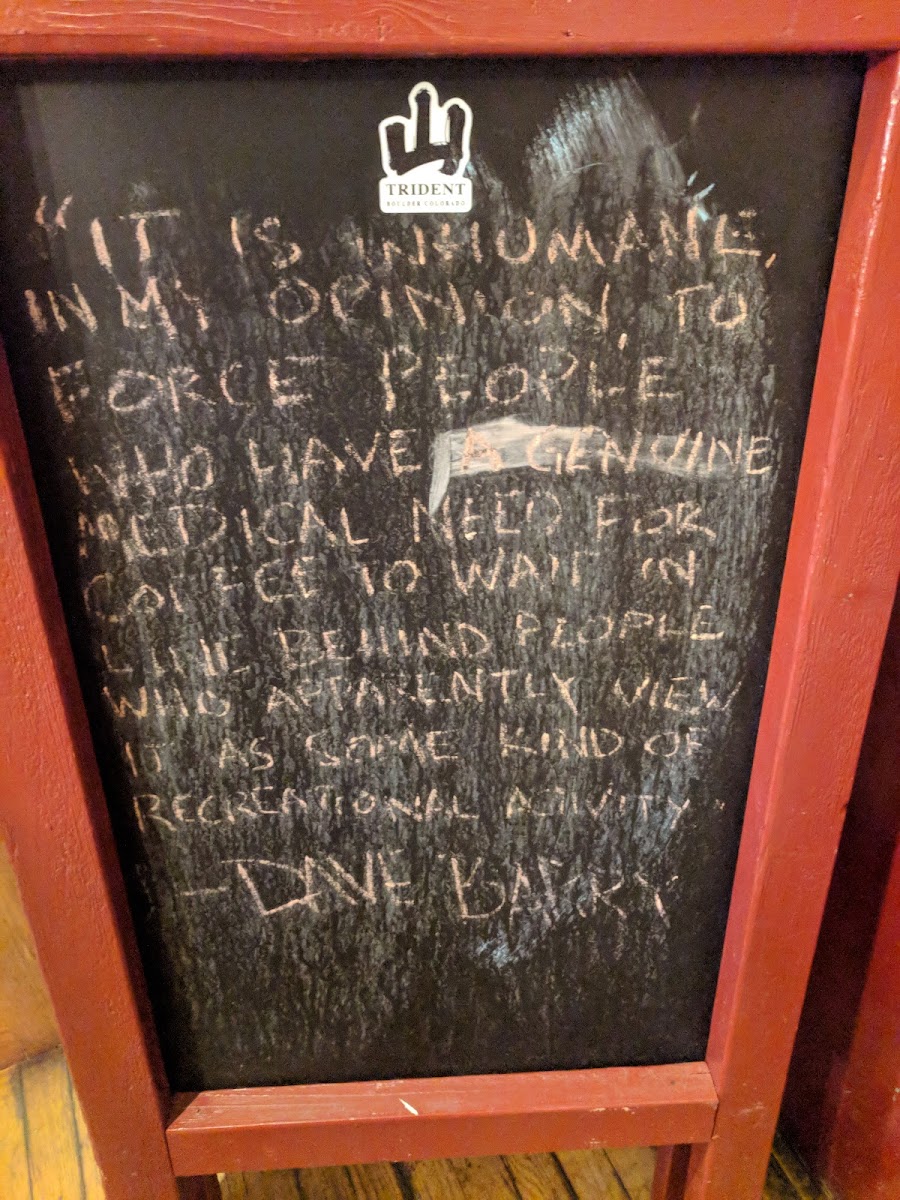 TRIDENT
BOULDER COLORADO
"IT IS INHUMANE,
IN MY OPINION, TO
FORCE PEOPLE
WHO HAVE A GENUINE
MEDICAL NEED FOR
COFFEE TO WAIT IN
LINE BEHIND PEOPLE
WHO APPARENTLY VIEW
IT AS SOME KIND OF
RECREATIONAL ACTIVITY"
-DAVE BARRY